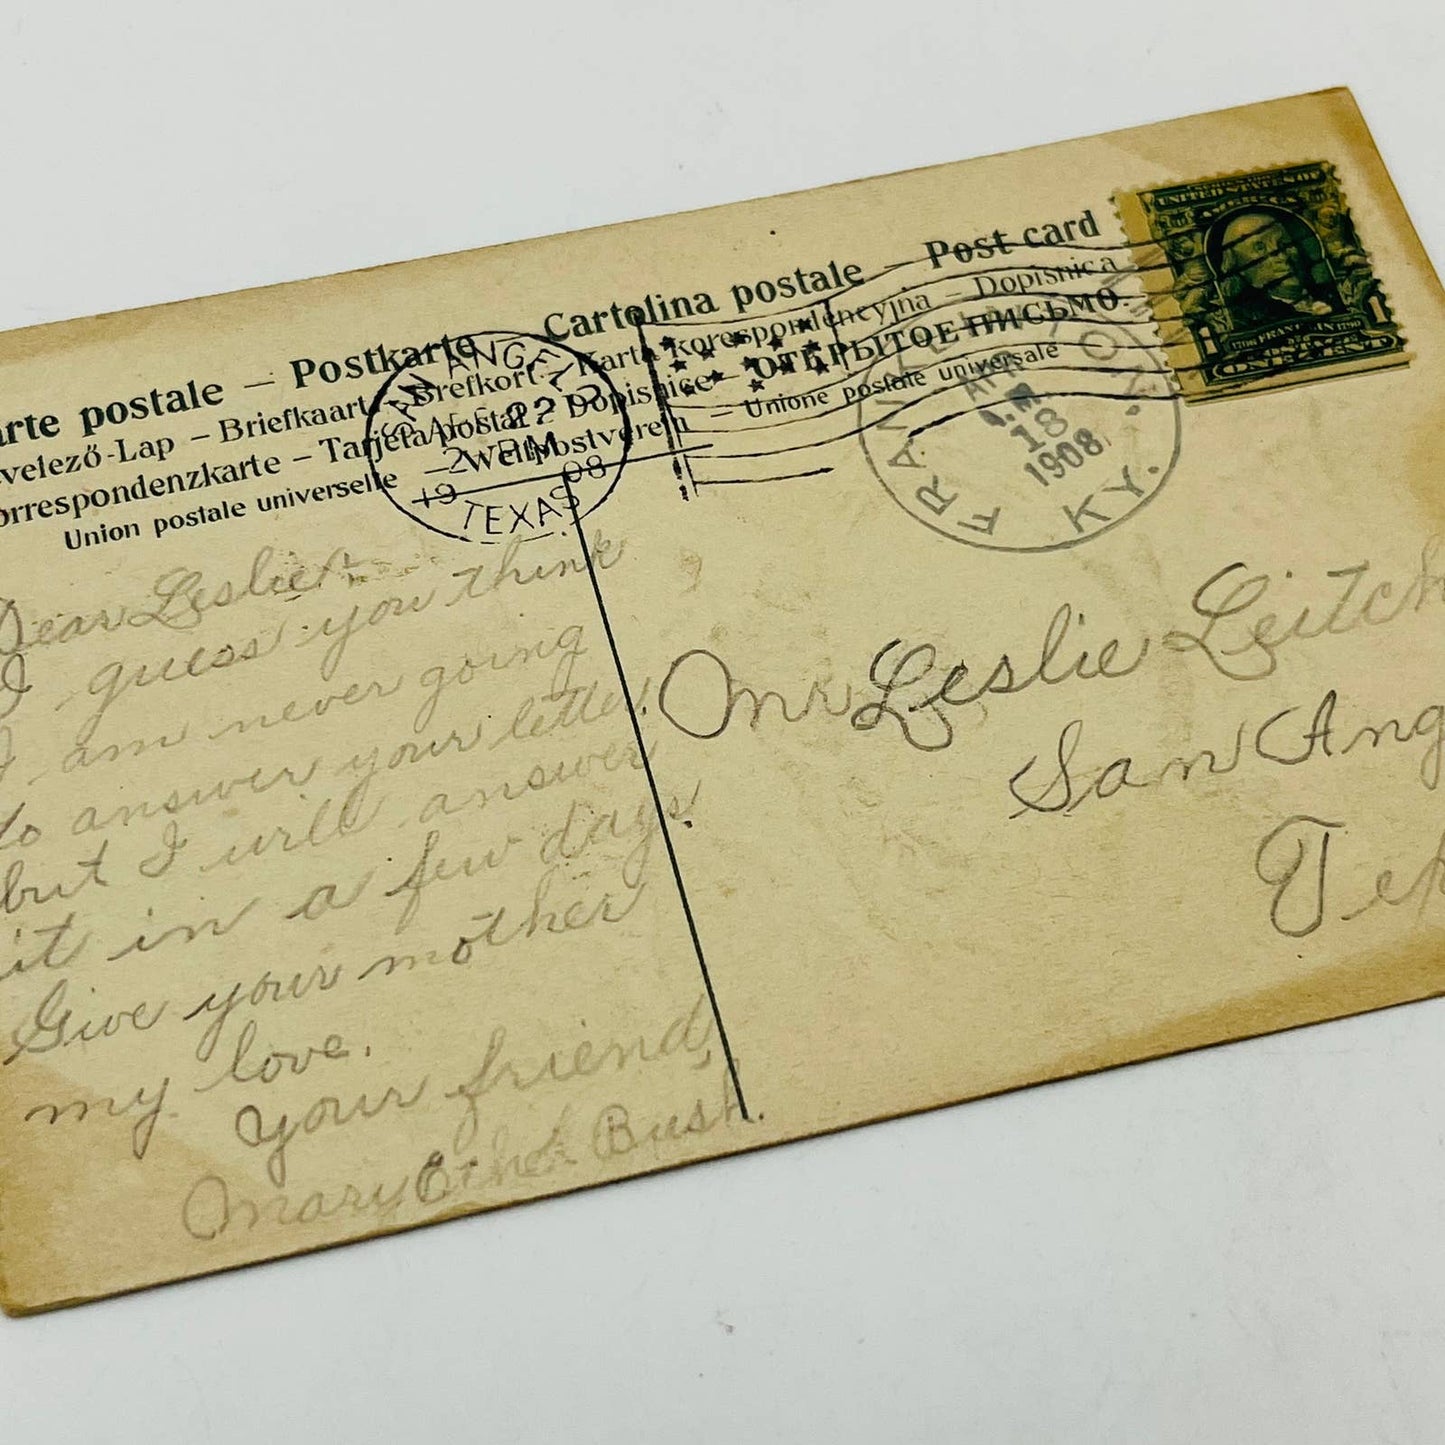 arte postale – Postkarte – Cartolina postale – Post card
velező-Lap – Briefkaart – Brefkort – Karta korespondencyjna – Dopisnica
orrespondenzkarte – Tarjeta postal – Dopisnice – ОТКРЫТОЕ ПИСЬМО.
Union postale universelle – Weltpostverein – Unione postale universale
SAN ANGELO
22
2 PM
19 08
TEXAS
FRANKLIN
18
1908
KY.
UNITED STATES OF
AMERICA
1 1
FRANKLIN
ONE CENT
Dear Leslie:
I guess you think
I am never going
to answer your letter,
but I will answer
it in a few days.
Give your mother
my love.
Your friend,
Mary Bush.
Mr Leslie Leitch
San Ang
Tex